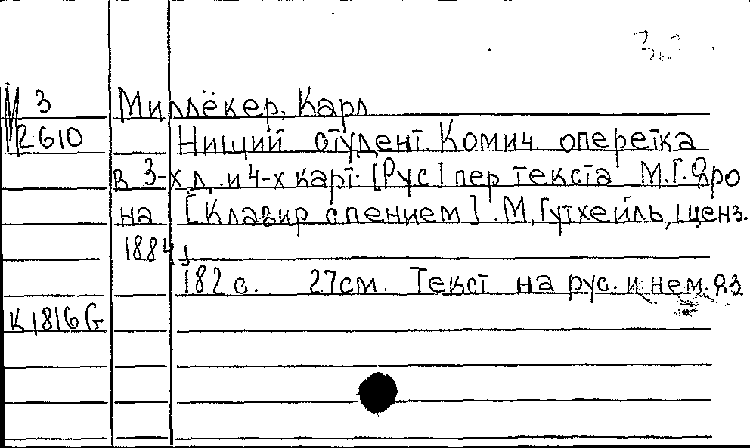 М 3
2610
Миллёкер, Карл
Нищий студент. Комич оперетка
в 3-х д. и 4-х карт. [Рус] пер текста М.Г. Яро
на [Клавир с пением]. М, Гутхейль, ценз.
1884
182 с. 27см. Текст на рус. и нем. яз
К 1816 G